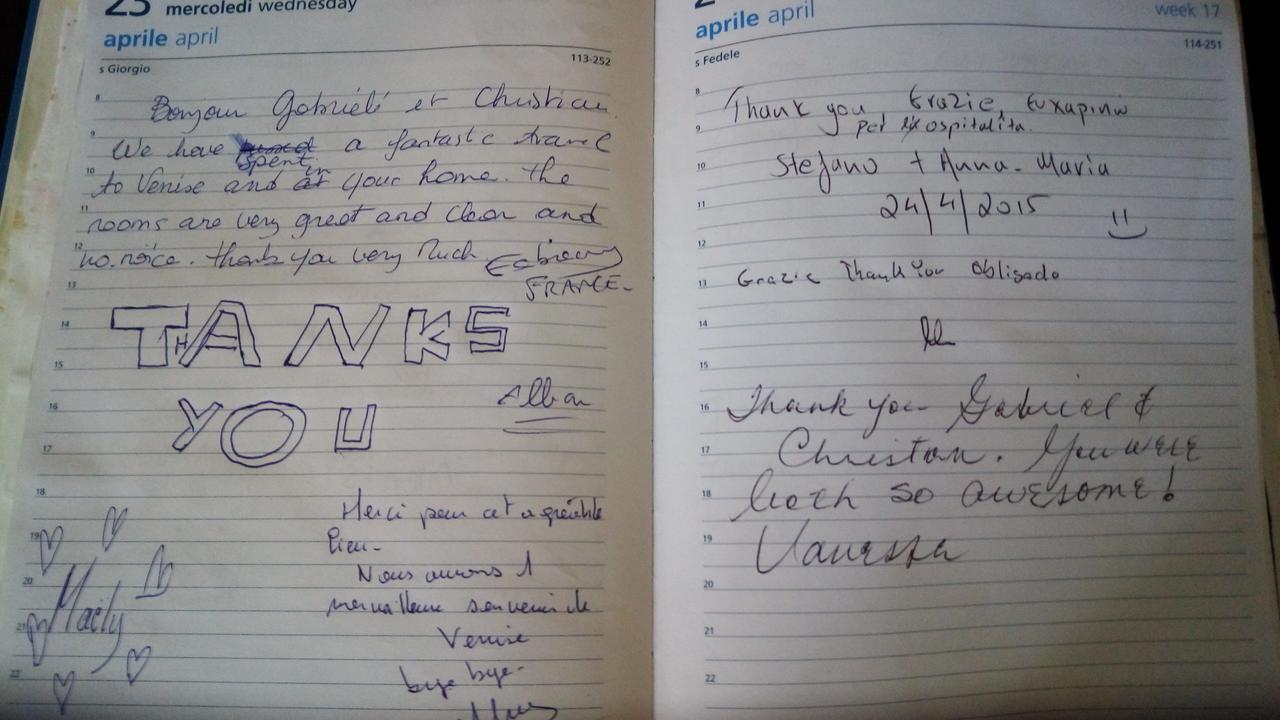 23 mercoledì wednesday
aprile april
s Giorgio 113-252
Bonjour Gabriele et Christian
We have spent a fantastic travel
to Venise and in your home. the
rooms are very great and clean and
no. noice. thank you very Much
FRANCE-
THANKS
YOU
Alban
Merci pour cet agréable
lieu-
Nous aurons 1
merveilleux souvenir de
Venise
bye bye-
Maëly
8
9
10
11
12
13
14
15
16
17
18
19
20
21
22
aprile april week 17
s Fedele 114-251
Thank you Grazie, Ευχαριστώ
per ospitalita.
Stefano + Anna-Maria
24/4/2015
Grazie Thank You Obligado
Thank you Gabriel &
Christian. You were
both so awesome!
Vanessa
8
9
10
11
12
13
14
15
16
17
18
19
20
21
22